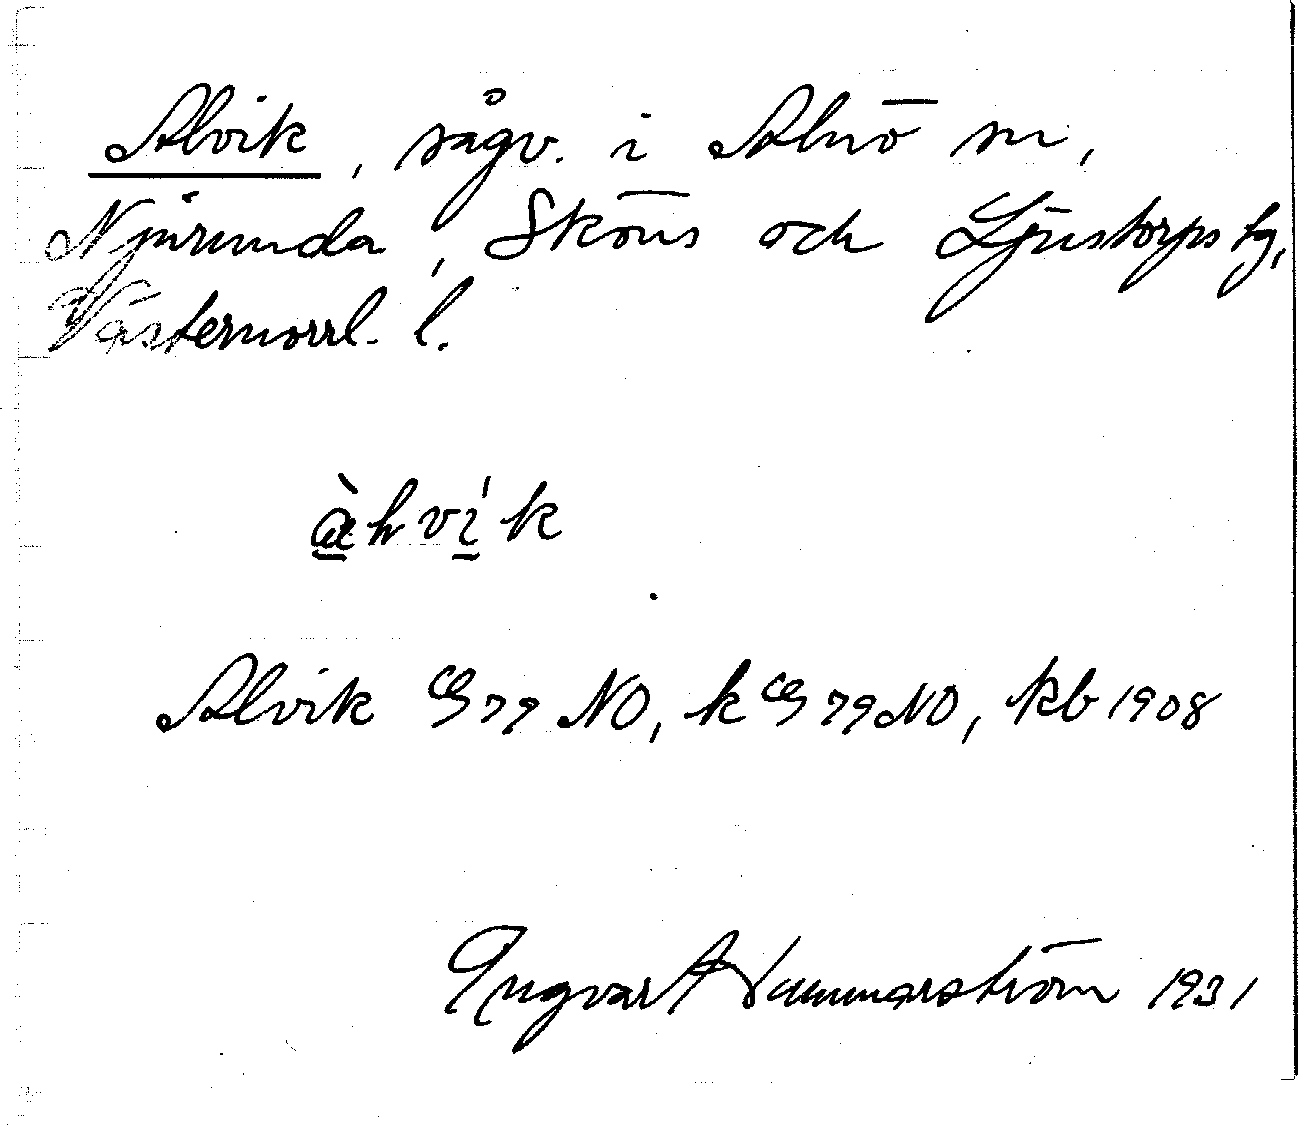 Alvik, sågv. i Alnö sn,
Njurunda, Sköns och Ljustorps tg,
Västernorrl. l.
àhvík
Alvik GS 79 NO, k GS 79 NO, kb 1908
Ingvar Hammarström 1931